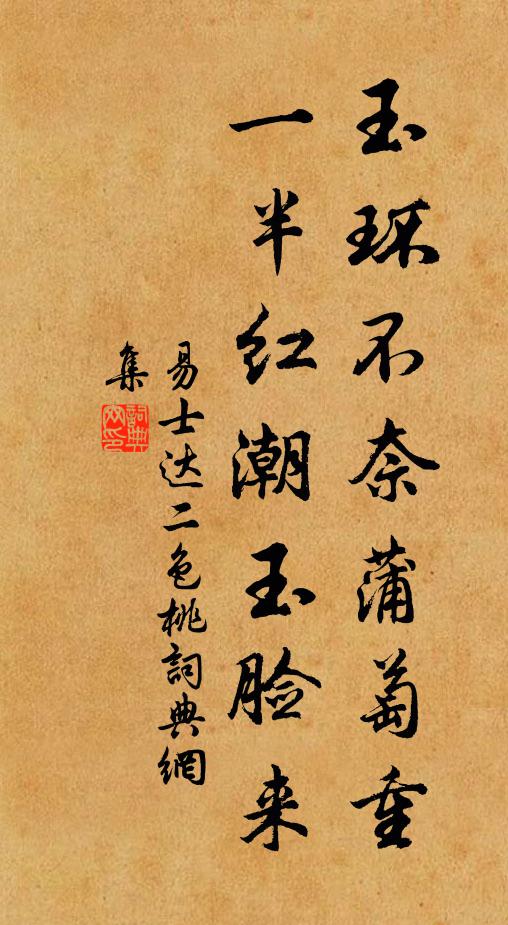 玉环不奈蒲萄重
一半红潮玉脸来
易士达二色桃詞典網
集
詞典
文印